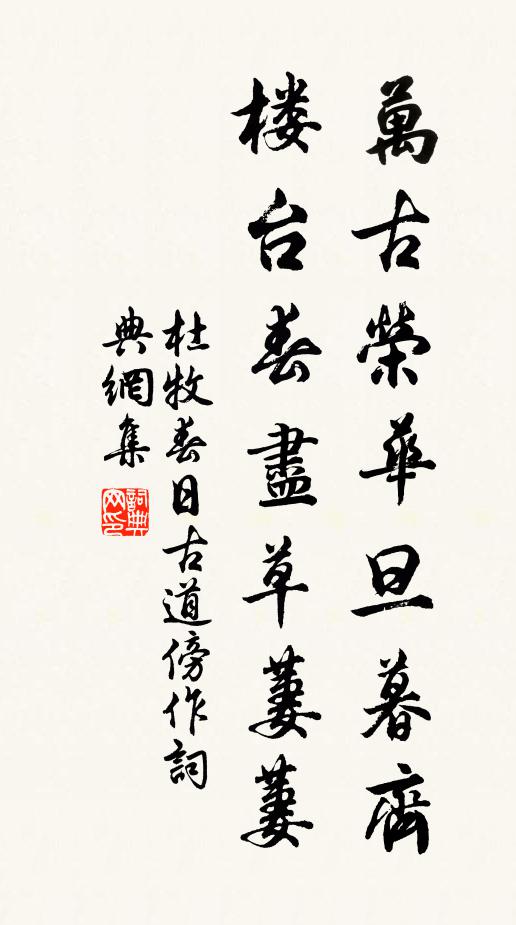 萬古榮華旦暮齊
楼台春盡草萋萋
杜牧春日古道傍作詞
典網集
詞典
网印